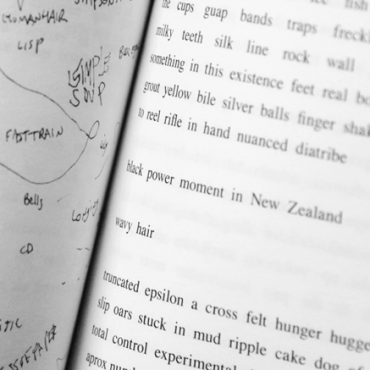 OTOMANHAIR
LISP
SIMPLE
SOUP
FASTTRAIN
Bells
CD
cups guap bands traps
milky teeth silk line rock wall
something in this existence feet real
grout yellow bile silver balls finger
to reel rifle in hand nuanced diatribe
black power moment in New Zealand
wavy hair
truncated epsilon a cross felt hunger
slip oars stuck in mud ripple cake dog
total control experimental
aprox